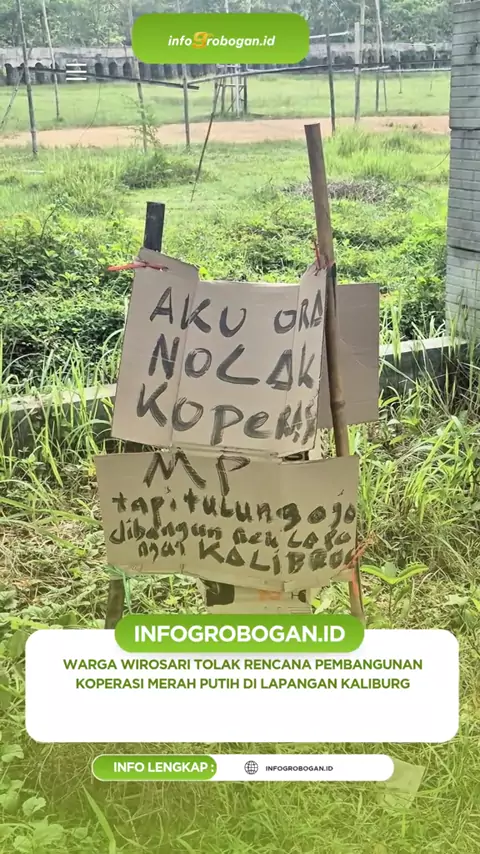 infogrobogan.id
AKU ORA
NOLAK
KOPERASI
MP
tapi tulung ojo
dibangun neng lapa
ngan KALIBRUG
INFOGROBOGAN.ID
WARGA WIROSARI TOLAK RENCANA PEMBANGUNAN
KOPERASI MERAH PUTIH DI LAPANGAN KALIBURG
INFO LENGKAP :
INFOGROBOGAN.ID